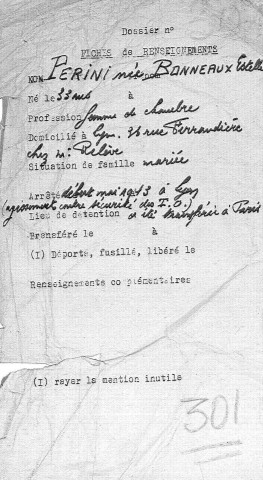 Dossier n°
FICHES de RENSEIGNEMENTS
NOM PERINI née BONNEAUX Estelle
Né le 33 ans à
Profession femme de chambre
Domicilié à Lyon, 36 rue Ferrandière
chez Mr
Situation de famille mariée
Arrêté début mai 1943 à Lyon
(agissement contre sécurité des T.O.)
Lieu de détention a été transférée à Paris
Transféré le à
(I) Déporté, fusillé, libéré le
Renseignements complémentaires
(I) rayer la mention inutile
301